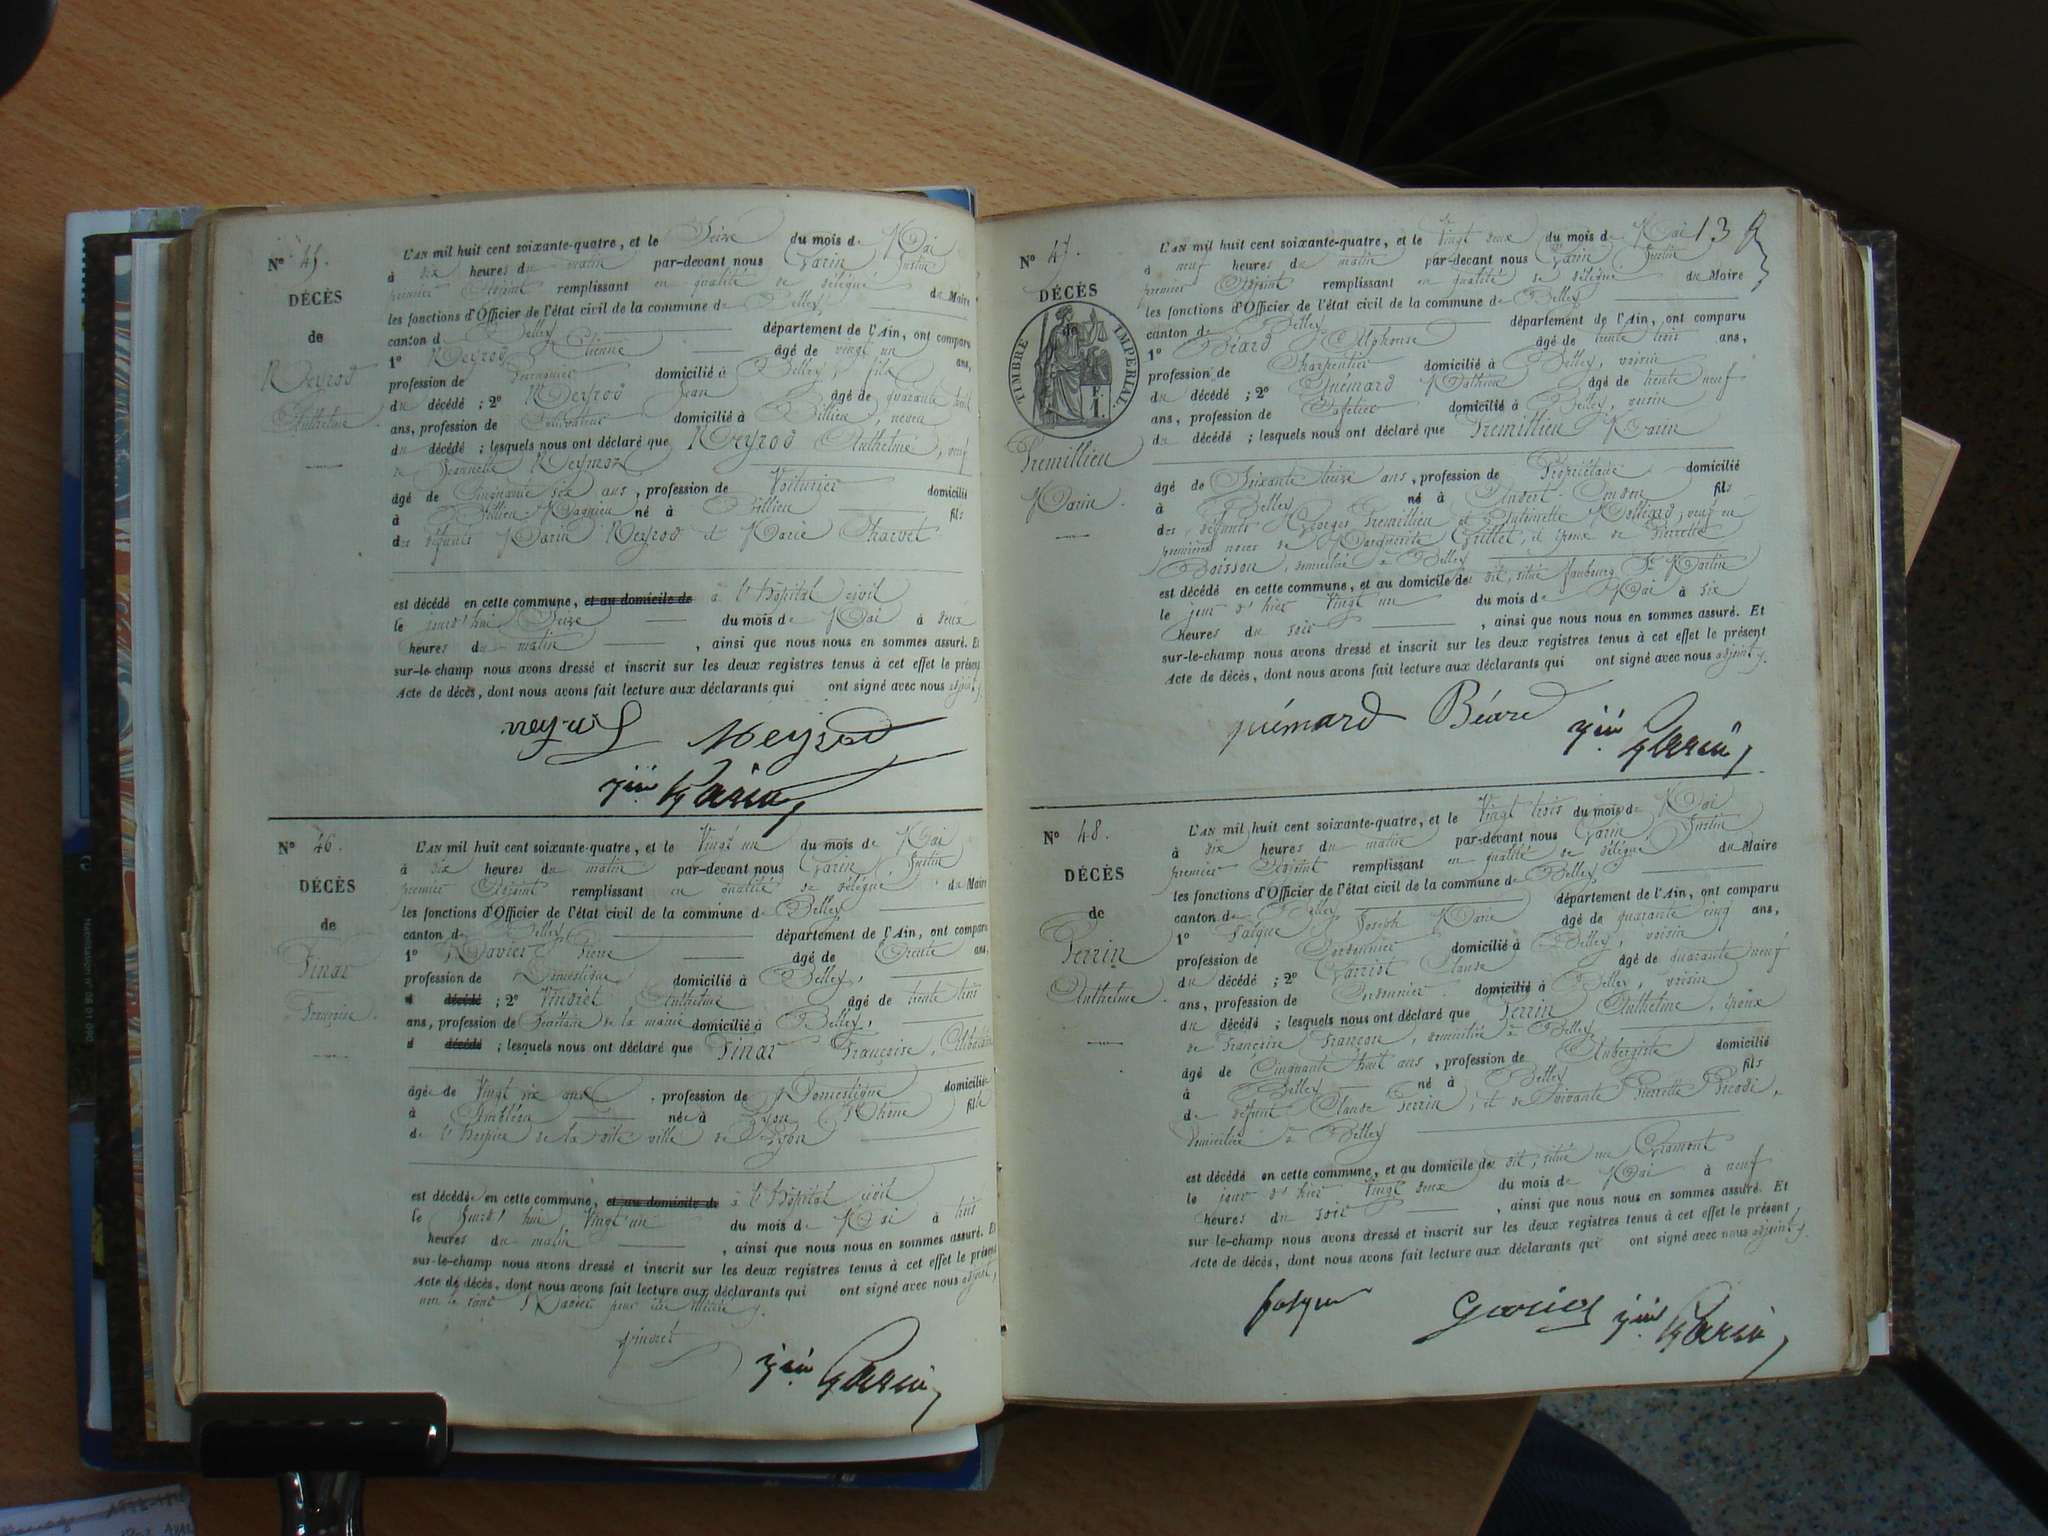 N° 45.
DÉCÈS
de
Neyrod
Anthelme
L'AN mil huit cent soixante-quatre, et le Seize du mois de Mai
à dix heures du matin par-devant nous Garin Justin
premier Adjoint remplissant en qualité de délégué du Maire
les fonctions d'Officier de l'état civil de la commune de Belley
canton de Belley département de l'Ain, ont comparu
1° Neyrod Etienne âgé de vingt un ans,
profession de domicilié à Belley, fils
du décédé ; 2° Neyrod Jean âgé de quarante huit
ans, profession de Cultivateur domicilié à Billieu, neveu
du décédé ; lesquels nous ont déclaré que Neyrod Anthelme, veuf
de Jeannette
âgé de Cinquante six ans, profession de Voiturier domicilié
à Billieu-Magnieu né à Billieu fils
des défunts Marin Neyrod et Marie Charvet
est décédé en cette commune, et au domicile de à l'hôpital civil
le jourd'hui Seize du mois de Mai à deux
heures du matin , ainsi que nous nous en sommes assuré. Et
sur-le-champ nous avons dressé et inscrit sur les deux registres tenus à cet effet le présent
Acte de décès, dont nous avons fait lecture aux déclarants qui ont signé avec nous adjoint
neyrod Neyrod
Jin Garin
N° 46.
DÉCÈS
de
Pinar
Françoise
L'AN mil huit cent soixante-quatre, et le Vingt un du mois de Mai
à dix heures du matin par-devant nous Garin Justin
premier Adjoint remplissant en qualité de délégué du Maire
les fonctions d'Officier de l'état civil de la commune de Belley
canton de Belley département de l'Ain, ont comparu
1° Pierre âgé de Trente ans,
profession de Domestique domicilié à Belley,
d décédé ; 2° Vinoret Anthelme âgé de trente trois
ans, profession de Secrétaire de la mairie domicilié à Belley,
d décédé ; lesquels nous ont déclaré que Pinar Françoise, Célibataire
âgée de Vingt six ans, profession de Domestique domiciliée
à Ambléon née à Lyon, Rhône fille
de l'hospice de la dite ville de Lyon
est décédée en cette commune, et au domicile de à l'hôpital civil
le Jourd'hui Vingt un du mois de Mai à huit
heures du matin , ainsi que nous nous en sommes assuré. Et
sur-le-champ nous avons dressé et inscrit sur les deux registres tenus à cet effet le présent
Acte de décès, dont nous avons fait lecture aux déclarants qui ont signé avec nous adjoint,
non le pour
Jin Garin
13
N° 47.
DÉCÈS
de
TIMBRE IMPÉRIAL.
Tremillieu
Marin
L'AN mil huit cent soixante-quatre, et le Vingt deux du mois de Mai
à neuf heures du matin par-devant nous Garin Justin
premier Adjoint remplissant en qualité de délégué du Maire
les fonctions d'Officier de l'état civil de la commune de Belley
canton de Belley département de l'Ain, ont comparu
1° Béard Alphonse âgé de trente trois ans,
profession de Charpentier domicilié à Belley, voisin
du décédé ; 2° Guémard Mathieu âgé de trente neuf
ans, profession de Cafetier domicilié à Belley, voisin
du décédé ; lesquels nous ont déclaré que Tremillieu Marin
âgé de Soixante treize ans, profession de Propriétaire domicilié
à Belley né à Andert-Condon fils
des défunts Georges Tremillieu et Antoinette veuf en
premières noces de Marguerite Grillet, et époux de Pierrette
Boisson, domiciliée à Belley
est décédé en cette commune, et au domicile de dit, situé faubourg St Martin
le jour d'hier Vingt un du mois de Mai à six
heures du soir , ainsi que nous nous en sommes assuré. Et
sur-le-champ nous avons dressé et inscrit sur les deux registres tenus à cet effet le présent
Acte de décès, dont nous avons fait lecture aux déclarants qui ont signé avec nous adjoint
guémard Béard Jin Garin
N° 48.
DÉCÈS
de
Perrin
Anthelme
L'AN mil huit cent soixante-quatre, et le Vingt trois du mois de Mai
à dix heures du matin par-devant nous Garin Justin
premier Adjoint remplissant en qualité de délégué du Maire
les fonctions d'Officier de l'état civil de la commune de Belley
canton de Belley département de l'Ain, ont comparu
1° Falque Joseph Marie âgé de quarante cinq ans,
profession de Cordonnier domicilié à Belley, voisin
du décédé ; 2° Claude âgé de quarante neuf
ans, profession de Cordonnier domicilié à Belley, voisin
du décédé ; lesquels nous ont déclaré que Perrin Anthelme, époux
de Françoise Françon, domiciliée à Belley
âgé de Cinquante huit ans, profession de Aubergiste domicilié
à Belley né à Belley fils
de défunt Claude Perrin, et de vivante Pierrette
domiciliée à Belley
est décédé en cette commune, et au domicile de dit, situé rue Gramont
le jour d'hier Vingt deux du mois de Mai à neuf
heures du soir , ainsi que nous nous en sommes assuré. Et
sur-le-champ nous avons dressé et inscrit sur les deux registres tenus à cet effet le présent
Acte de décès, dont nous avons fait lecture aux déclarants qui ont signé avec nous adjoint
falque Jin Garin